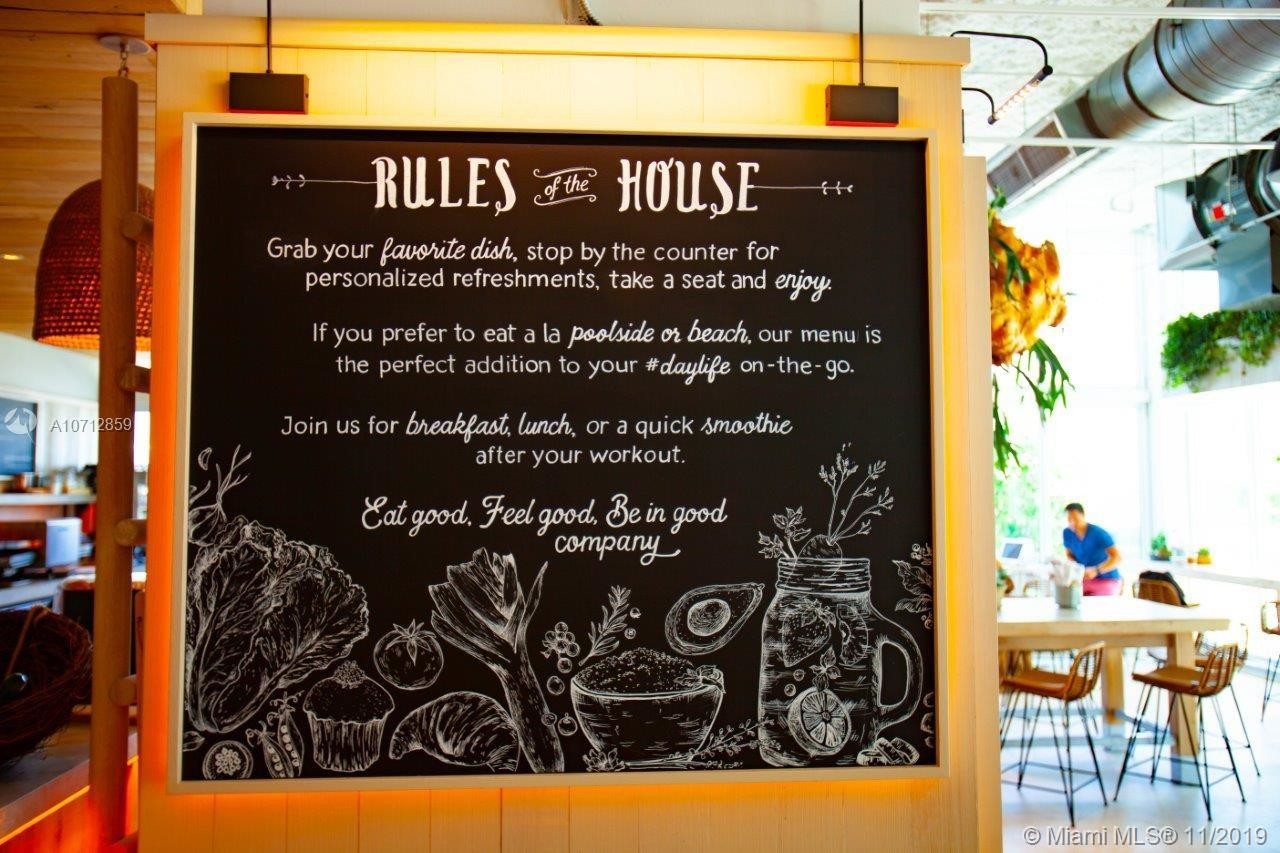 RULES of the HOUSE
Grab your favorite dish, stop by the counter for
personalized refreshments, take a seat and enjoy.
If you prefer to eat a la poolside or beach, our menu is
the perfect addition to your #daylife on-the-go.
Join us for breakfast, lunch, or a quick smoothie
after your workout.
Eat good, Feel good, Be in good
company
A10712859
© Miami MLS® 11/2019